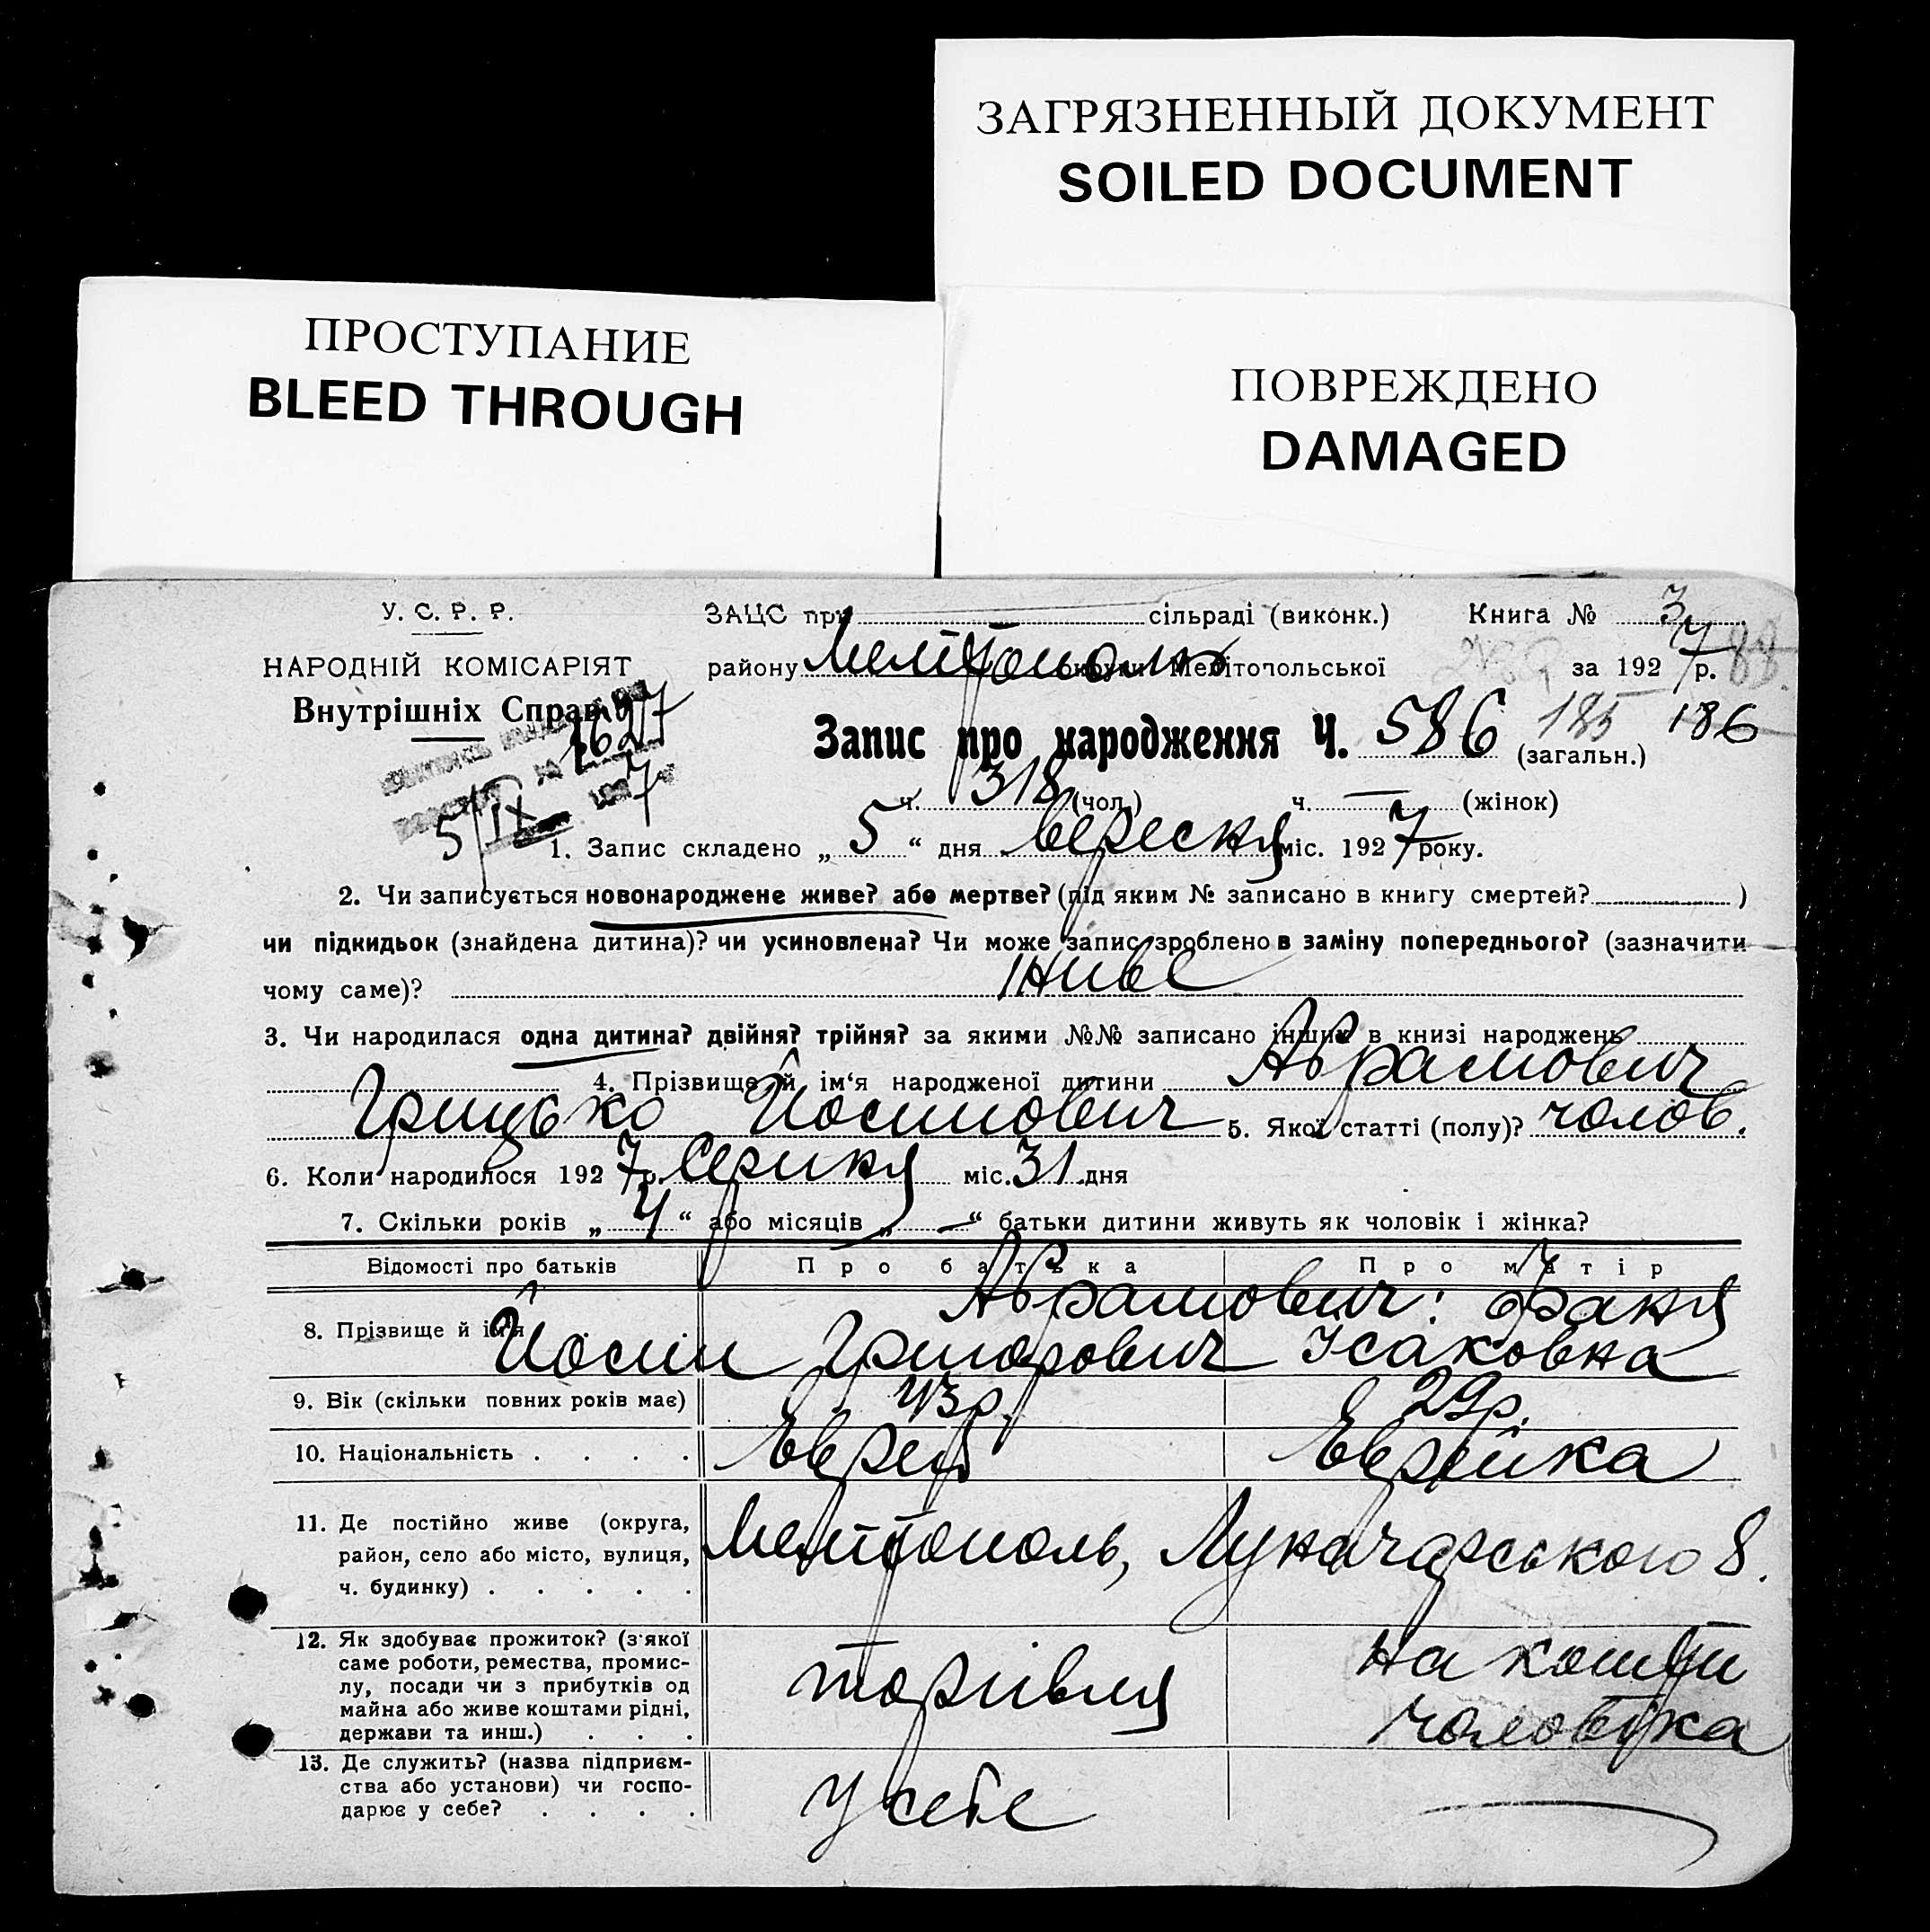 ЗАГРЯЗНЕННЫЙ ДОКУМЕНТ
SOILED DOCUMENT
ПРОСТУПАНИЕ
BLEED THROUGH
ПОВРЕЖДЕНО
DAMAGED
У. С. Р. Р.
НАРОДНІЙ КОМІСАРІЯТ
Внутрішніх Справ
1627
5/IX 1927
ЗАЦС при сільраді (виконк.) Книга № 3
району Мелітополь округи Мелітопольської за 1927 р. 88
Запис про народження Ч. 586 (загальн.) 185 186
ч. 318 (чол.) ч. — (жінок)
1. Запис складено „ 5 “ дня вересня міс. 1927 року.
2. Чи записується новонароджене живе? або мертве? (під яким № записано в книгу смертей? )
чи підкидьок (знайдена дитина)? чи усиновлена? Чи може запис зроблено в заміну попереднього? (зазначити
чому саме)? живе
3. Чи народилася одна дитина? двійня? трійня? за якими №№ записано інших в книзі народжень
4. Прізвище й ім‘я народженої дитини Абрамович
Грицько Йосипович 5. Якої статті (полу)? чолов.
6. Коли народилося 1927 р. Серпня міс. 31 дня
7. Скільки років „ 4 “ або місяців „ — “ батьки дитини живуть як чоловік і жінка?
Відомості про батьків Про батька Про матір
8. Прізвище й ім‘я Абрамович: Фаня
Йосип Григорович Ісаковна
9. Вік (скільки повних років має) 43 р. 29 р.
10. Національність . . . . Еврей Еврейка
11. Де постійно живе (округа,
район, село або місто, вулиця,
ч. будинку) . . . . .
Мелітополь, Луначарського 8.
12. Як здобуває прожиток? (з якої
саме роботи, ремества, промис-
лу, посади чи з прибутків од
майна або живе коштами рідні,
держави та инш.) . . .
торгівля
на кошти
чоловіка
13. Де служить? (назва підприєм-
ства або установи) чи госпо-
дарює у себе? . . . .
У себе